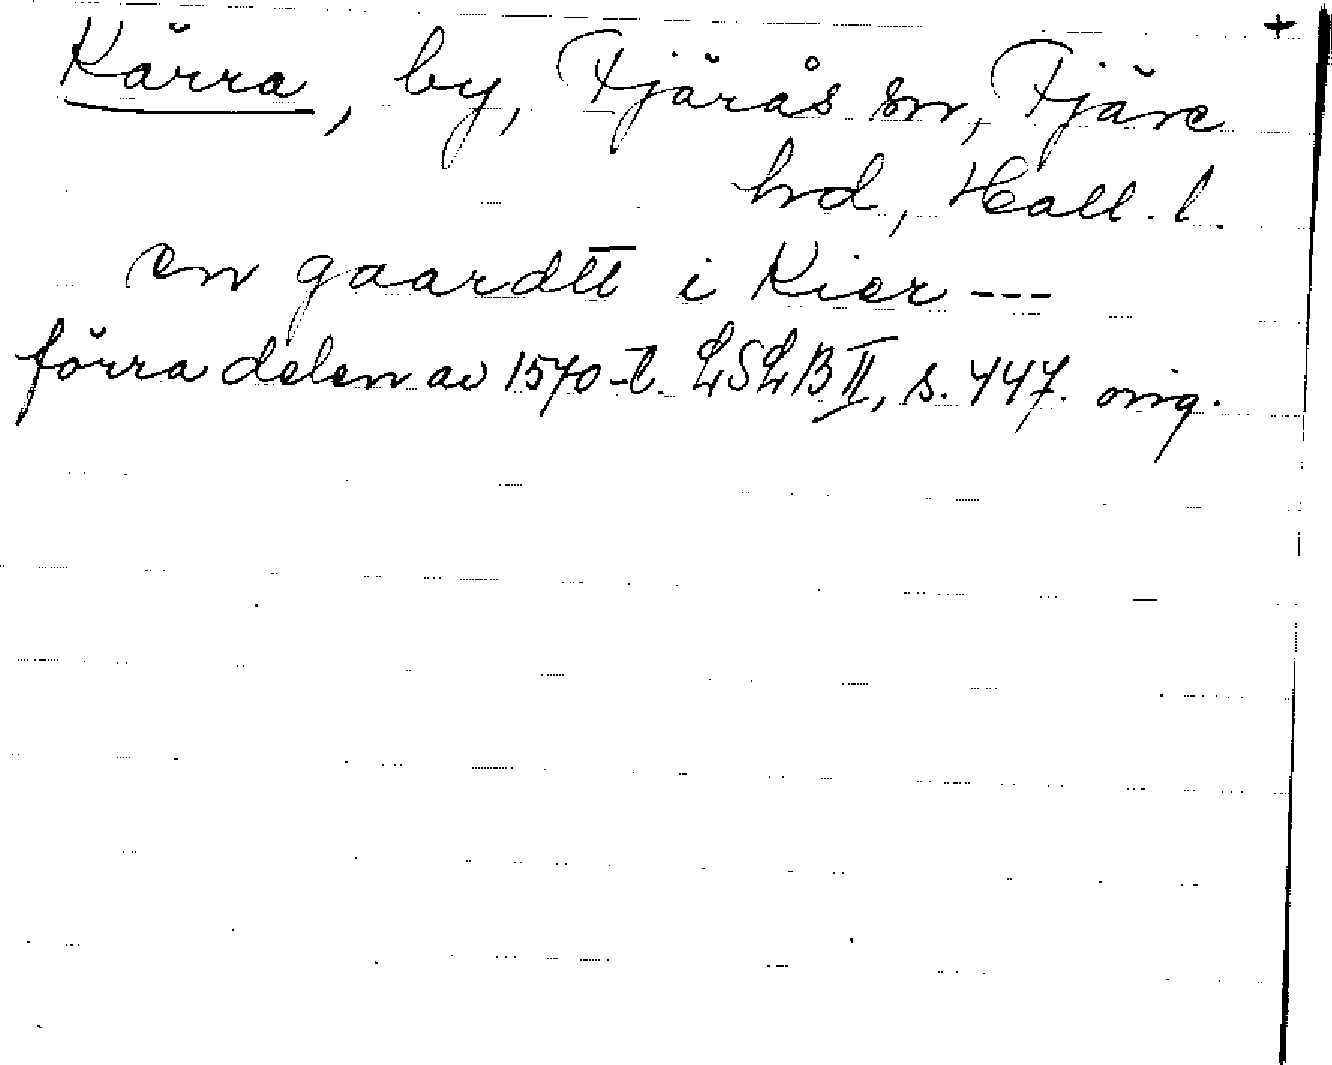 +
Kärra, by, Fjärås sn, Fjäre
hrd, Hall. l.
en gaardtt i Kier ---
förra delen av 1570-t. LSLB II, s. 447. orig.